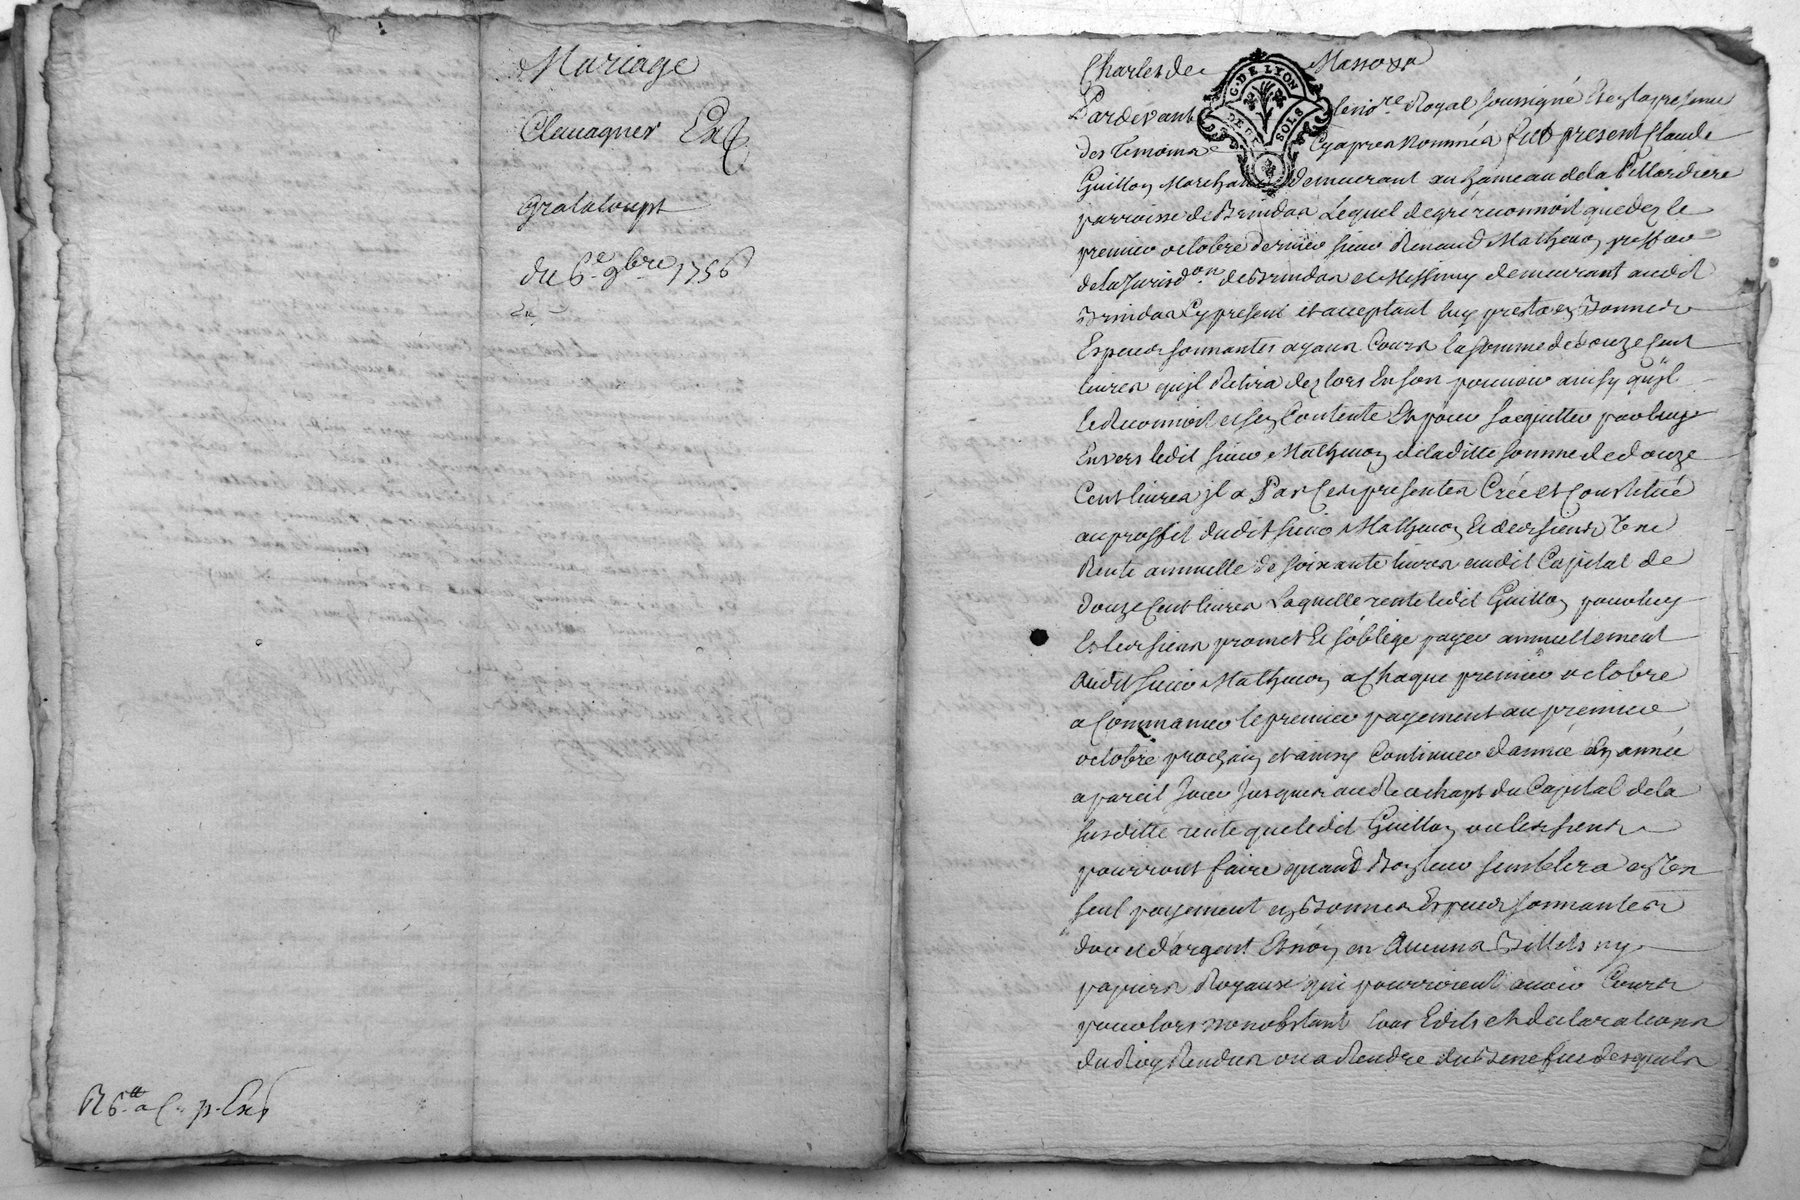 Mariage
Clavagner Ext
Grataloupt
du 6e 9bre 1756
R 6tt a C. p. Ext
Charles de Massoxa
G. DE LYON
DE DEUX SOLS
Pardevant le nore Royal soussigné et en la presence
des temoins cy apres nommés fut present Claude
Guillon Marchand demeurant au hameau de la Pillardiere
parroisse de Brindas Lequel de gré reconnoit que dez le
premier octobre dernier sieur Renaud Mathevon greffier
de la Jurisdon de Brindas et Messimy demeurant audit
Brindas Cy present et acceptant luy presta en Bonnes
Especes sonnantes ayans Cours la somme de douze Cent
livres qu'jl Retira dez lors en son pouvoir ainsy qu'jl
le Reconnoit et s'en Contente Et pour s'acquitter par luy
Envers ledit sieur Mathevon de laditte somme de douze
Cent livres jl a Par Ces presentes Créé et Constitué
au proffit dudit sieur Mathevon Et des siens Une
Rente annuelle de soixante livres audit Capital de
douze Cent livres Laquelle rente ledit Guillon pour luy
Et les siens promet Et s'oblige payer annuellement
Audit sieur Mathevon a Chaque premier octobre
a Commancer le premier payement au premier
octobre prochain et ainsy Continuer d'année En année
a pareil Jour Jusques au Rechapt du Capital de la
susditte rente que ledit Guillon ou les siens
pourront faire quand Bon leur semblera en Un
seul payement en Bonnes Especes sonnantes
d'or et d'argent Et non en Aucuns Billets ny
papiers Royaux qui pourroient avoir Cours
pour lors nonobstant tous Edits et declarations
du Roy Rendus ou a Rendre du Benefice desquels